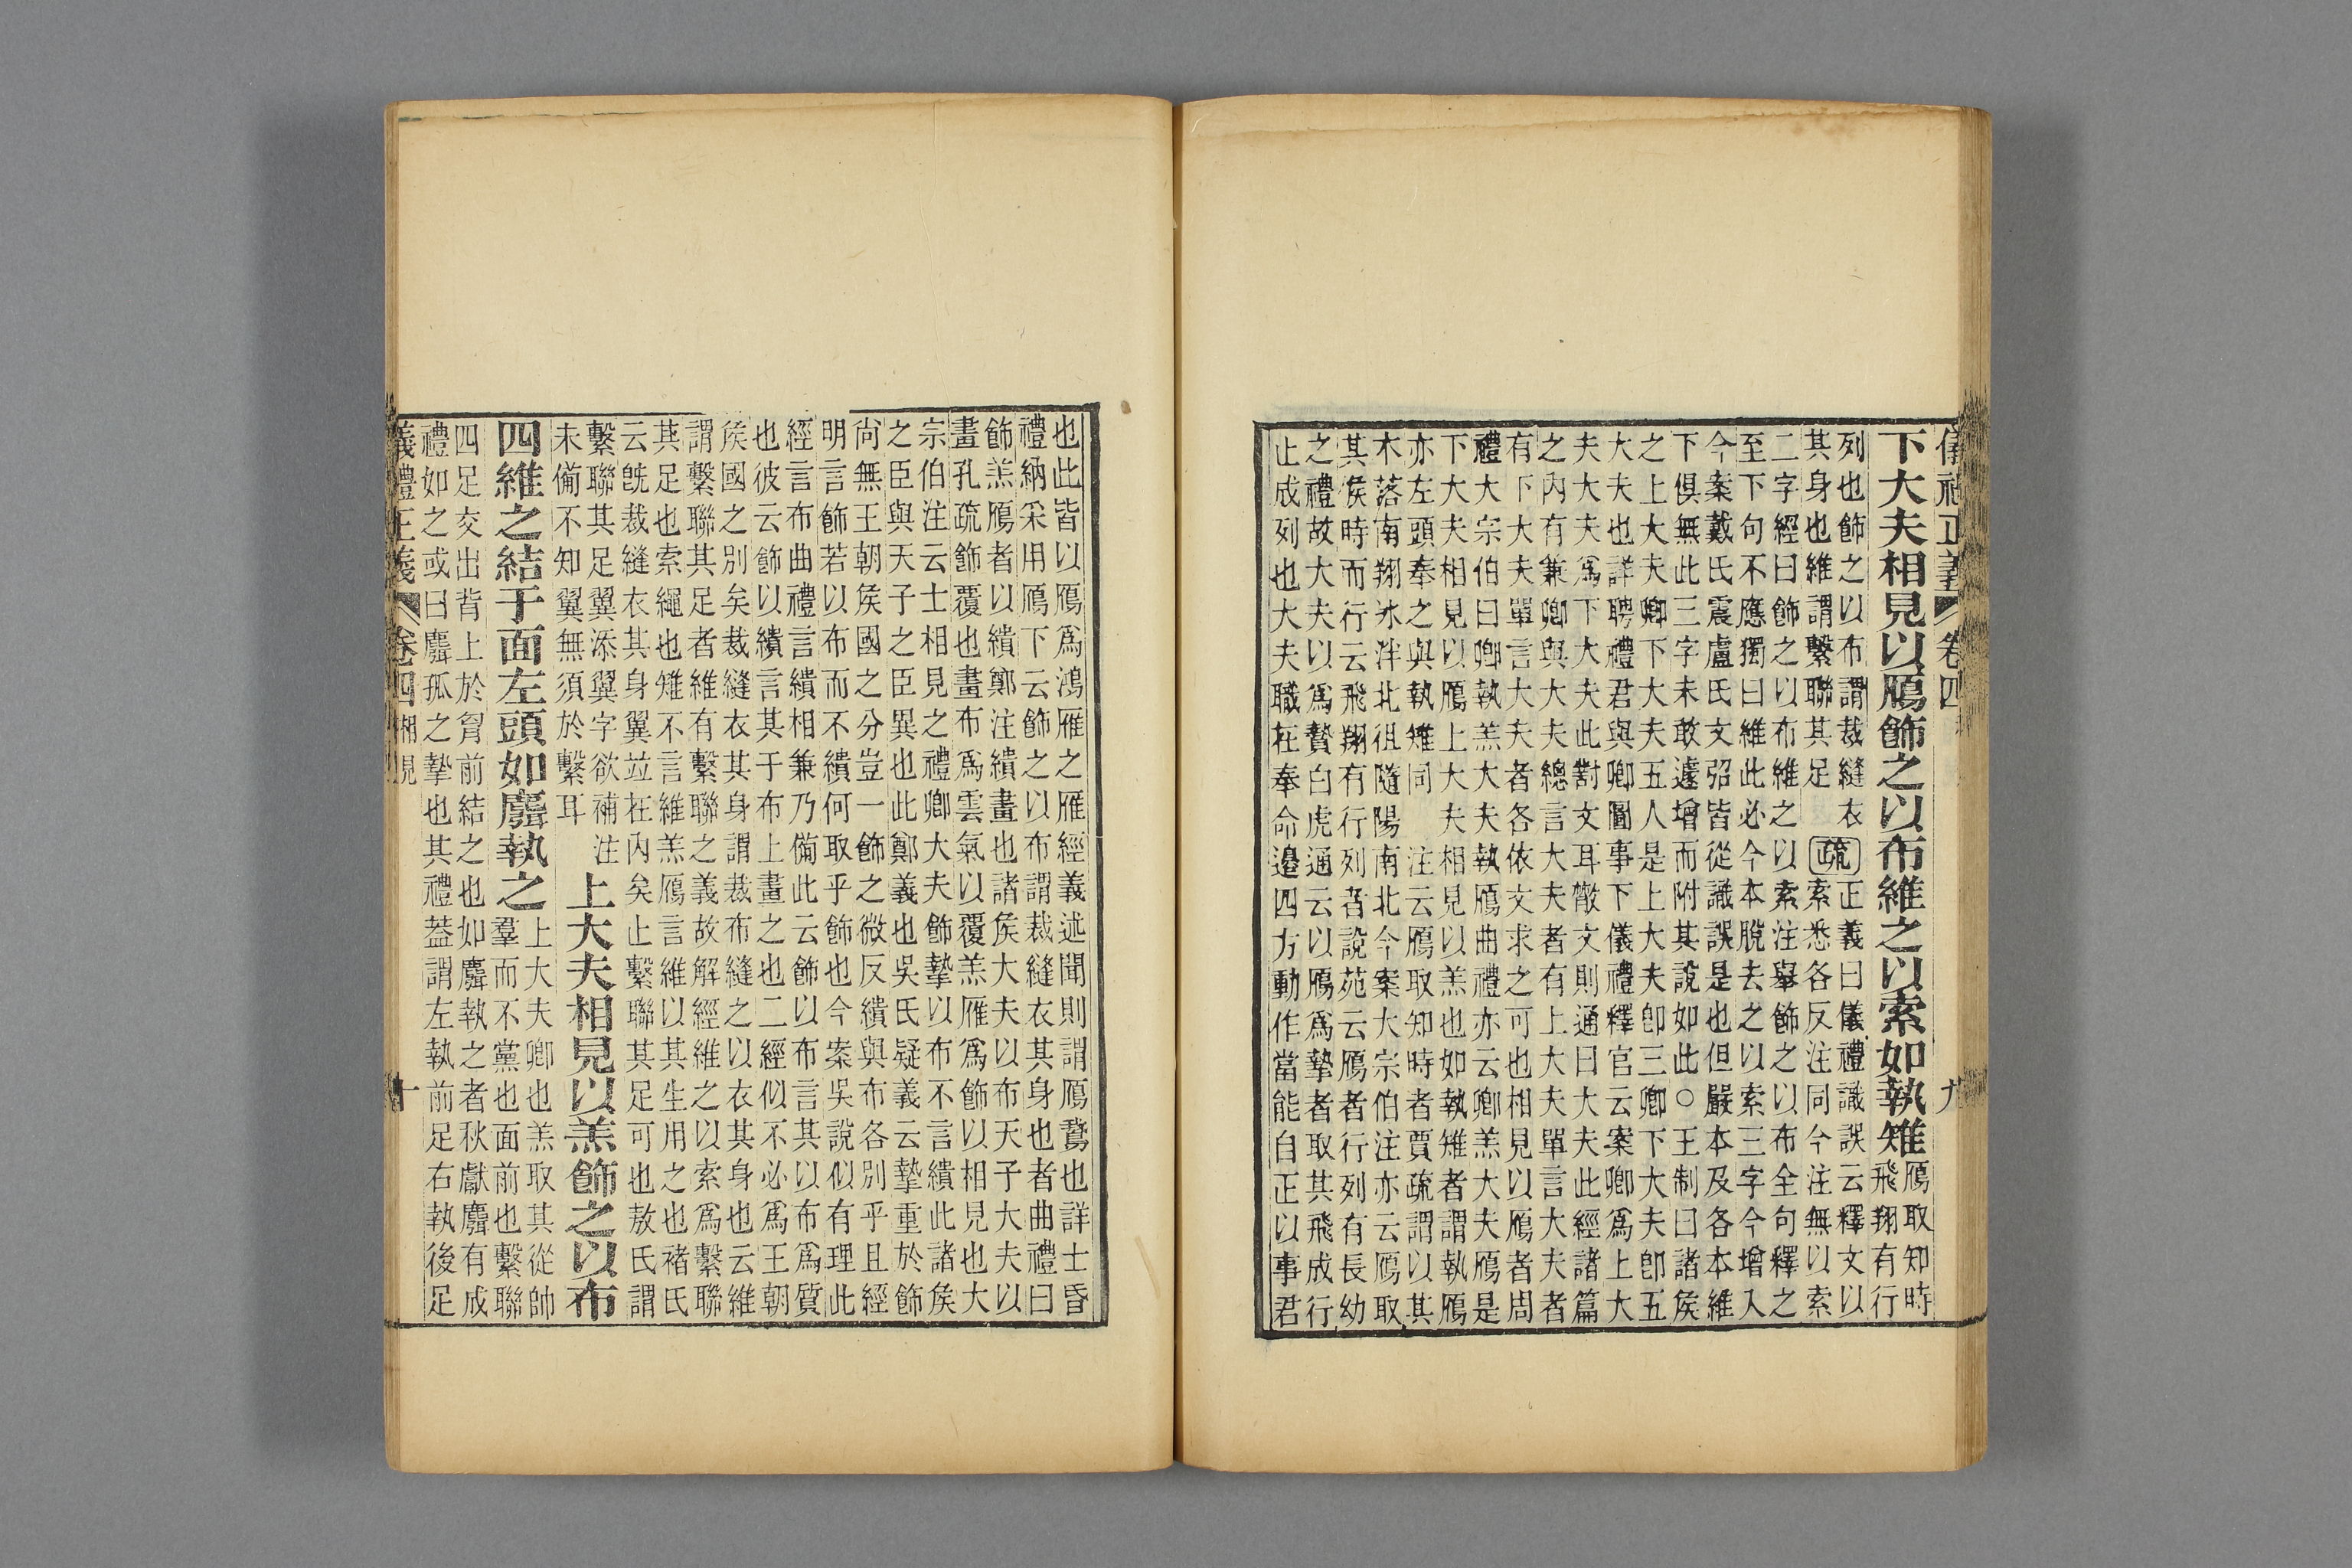 儀禮正義 卷四 九
下大夫相見以鴈飾之以布維之以索如執雉鴈取知時
飛翔有行
列也飾之以布謂裁縫衣
其身也維謂繫聯其足 疏 正義曰儀禮識誤云釋文以
索悉各反注同今注無以索
二字經曰飾之以布維之以索注舉飾之以布全句釋之
至下句不應獨曰維此必今本脫去之以索三字今增入
今案戴氏震盧氏文弨皆從識誤是也但嚴本及各本維
下俱無此三字未敢遽增而附其說如此○王制曰諸侯
之上大夫卿下大夫五人是上大夫卽三卿下大夫卽五
大夫也詳聘禮君與卿圖事下儀禮釋官云案卿爲上大
夫大夫爲下大夫此對文耳散文則通曰大夫此經諸篇
之內有兼卿與大夫總言大夫者有上大夫單言大夫者
有下大夫單言大夫者各依文求之可也相見以鴈者周
禮大宗伯曰卿執羔大夫執鴈曲禮亦云卿羔大夫鴈是
下大夫相見以鴈上大夫相見以羔也如執雉者謂執鴈
亦左頭奉之與執雉同 注云鴈取知時者賈疏謂以其
木落南翔冰泮北徂隨陽南北今案大宗伯注亦云鴈取
其侯時而行云飛翔有行列者說苑云鴈者行列有長幼
之禮故大夫以爲贄白虎通云以鴈爲摯者取其飛成行
止成列也大夫職在奉命適四方動作當能自正以事君
也此皆以鴈爲鴻雁之雁經義述聞則謂鴈鵞也詳士昏
禮納采用鴈下云飾之以布謂裁縫衣其身也者曲禮曰
飾羔鴈者以繢鄭注繢畫也諸侯大夫以布天子大夫以
畫孔疏飾覆也畫布爲雲氣以覆羔雁爲飾以相見也大
宗伯注云士相見之禮卿大夫飾摯以布不言繢此諸侯
之臣與天子之臣異也此鄭義也吳氏疑義云摯重於飾
尙無王朝侯國之分豈一飾之微反繢與布各別乎且經
明言飾若以布而不繢何取乎飾也今案吳說似有理此
經言布曲禮言繢相兼乃備此云飾以布言其以布爲質
也彼云飾以繢言其于布上畫之也二經似不必爲王朝
侯國之別矣裁縫衣其身謂裁布縫之以衣其身也云維
謂繫聯其足者維有繫聯之義故解經維之以索爲繫聯
其足也索繩也雉不言維羔鴈言維以其生用之也褚氏
云旣裁縫衣其身翼並在內矣止繫聯其足可也敖氏謂
繫聯其足翼添翼字欲補注
未備不知翼無須於繫耳 上大夫相見以羔飾之以布
四維之結于面左頭如麛執之上大夫卿也羔取其從帥
羣而不黨也面前也繫聯
四足交出背上於胷前結之也如麛執之者秋獻麛有成
禮如之或曰麛孤之摯也其禮蓋謂左執前足右執後足
儀禮正義 卷四 相見 十